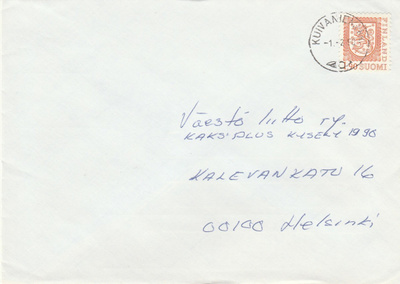 FINLAND
SUOMI
Väestö liitto ry.
KAKSPLUS KYSELY 1990
KALEVANKATU 16
00100 Helsinki